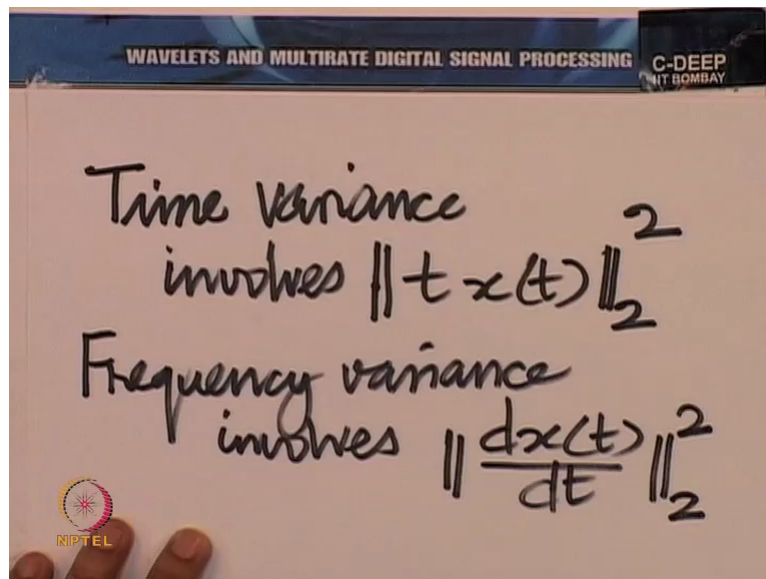 WAVELETS AND MULTIRATE DIGITAL SIGNAL PROCESSING
C-DEEP
IIT BOMBAY
Time variance
involves ‖t x(t)‖₂²
Frequency variance
involves ‖dx(t)/dt‖₂²
NPTEL